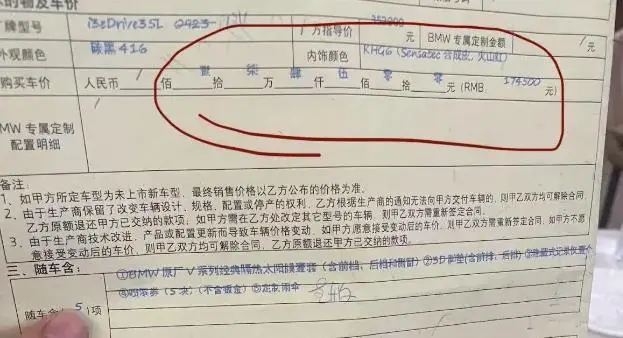 的物及车价
厂牌型号 i3eDrive35L 2023 厂方指导价 353900 元 BMW 专属定制金额 / 元
外观颜色 碳黑416 内饰颜色 KHG6 (Sensatec 合成皮, 火山红)
购买车价 人民币 / 佰 壹 拾 柒 万 肆 仟 伍 佰 零 拾 零 元 (RMB: 174500 元)
BMW 专属定制
配置明细
备注:
1、如甲方所定车型为未上市新车型，最终销售价格以乙方公布的价格为准。
2、由于生产商保留了改变车辆设计、规格、配置或停产的权利，乙方根据生产商的通知无法向甲方交付车辆的，则甲乙双方均可解除合同，
乙方原额退还甲方已交纳的款项；如甲方需在乙方处改定其它型号的车辆，则甲乙双方需重新签定合同。
3、由于生产商技术改进、产品或配置更新而导致车辆价格变动，如甲方愿意接受变动后的车价，则甲乙双方需重新签定合同；如甲方不愿
意接受变动后的车价，则甲乙双方均可解除合同，乙方原额退还甲方已交纳的款项。
三、随车含:
①BMW原厂V系列经典隔热太阳膜壹套（含前档、后档和侧窗）②3D脚垫(含前排、后排)③隐藏式记录仪壹个
随车含 5 项 ④喷漆券（5次，(不含钣金) ⑤定制雨伞